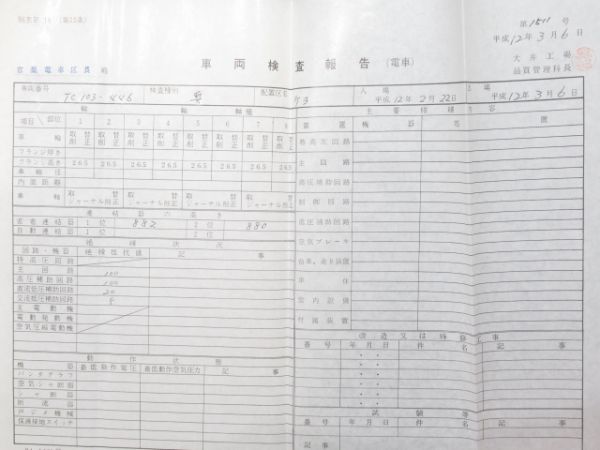 第 1511 号
平成 12 年 3 月 6 日
車両検査報告 (電車)
大井工場
品質管理科長
車両番号 Tc103-446 検査種別 要 配置区名 ケヨ 入場 平成 12 年 2 月 22 日 出場 平成 12 年 3 月 6 日
輪軸 主要修繕
項目 部位 1 2 3 4 5 6 7 8 装置 機器名
車輪 取替 削正 取替 削正 取替 削正 取替 削正 取替 削正 取替 削正 取替 削正 取替 削正 特高圧回路
フランジ厚さ
フランジ高さ 265 265 265 265 265 265 265 265 主回路
車輪径
内面距離 高圧補助回路
車軸 取替 ジャーナル削正 取替 ジャーナル削正 取替 ジャーナル削正 取替 ジャーナル削正 制御回路
連結器の高さ
密着連結器 1位 882 2位 880 低圧補助回路
自動連結器 1位 2位
絶縁状況 空気ブレーキ
回路・機器 絶縁抵抗値 記事
特高圧回路
主回路 100 車体
高圧補助回路 100
直流低圧補助回路 20 室内設備
交流低圧補助回路
主電動機 付属装置
電動発電機
空気圧縮電動機 改造又は特修工事
番号 年月日 件名 記事
動作状態
機器 最低動作電圧 最低動作空気圧力 記事
パンタグラフ
空気シャ断器
シャ断器
断流器 試験等
戸ジメ機械 番号 年月日 件名 記事
保護接地スイッチ
記事